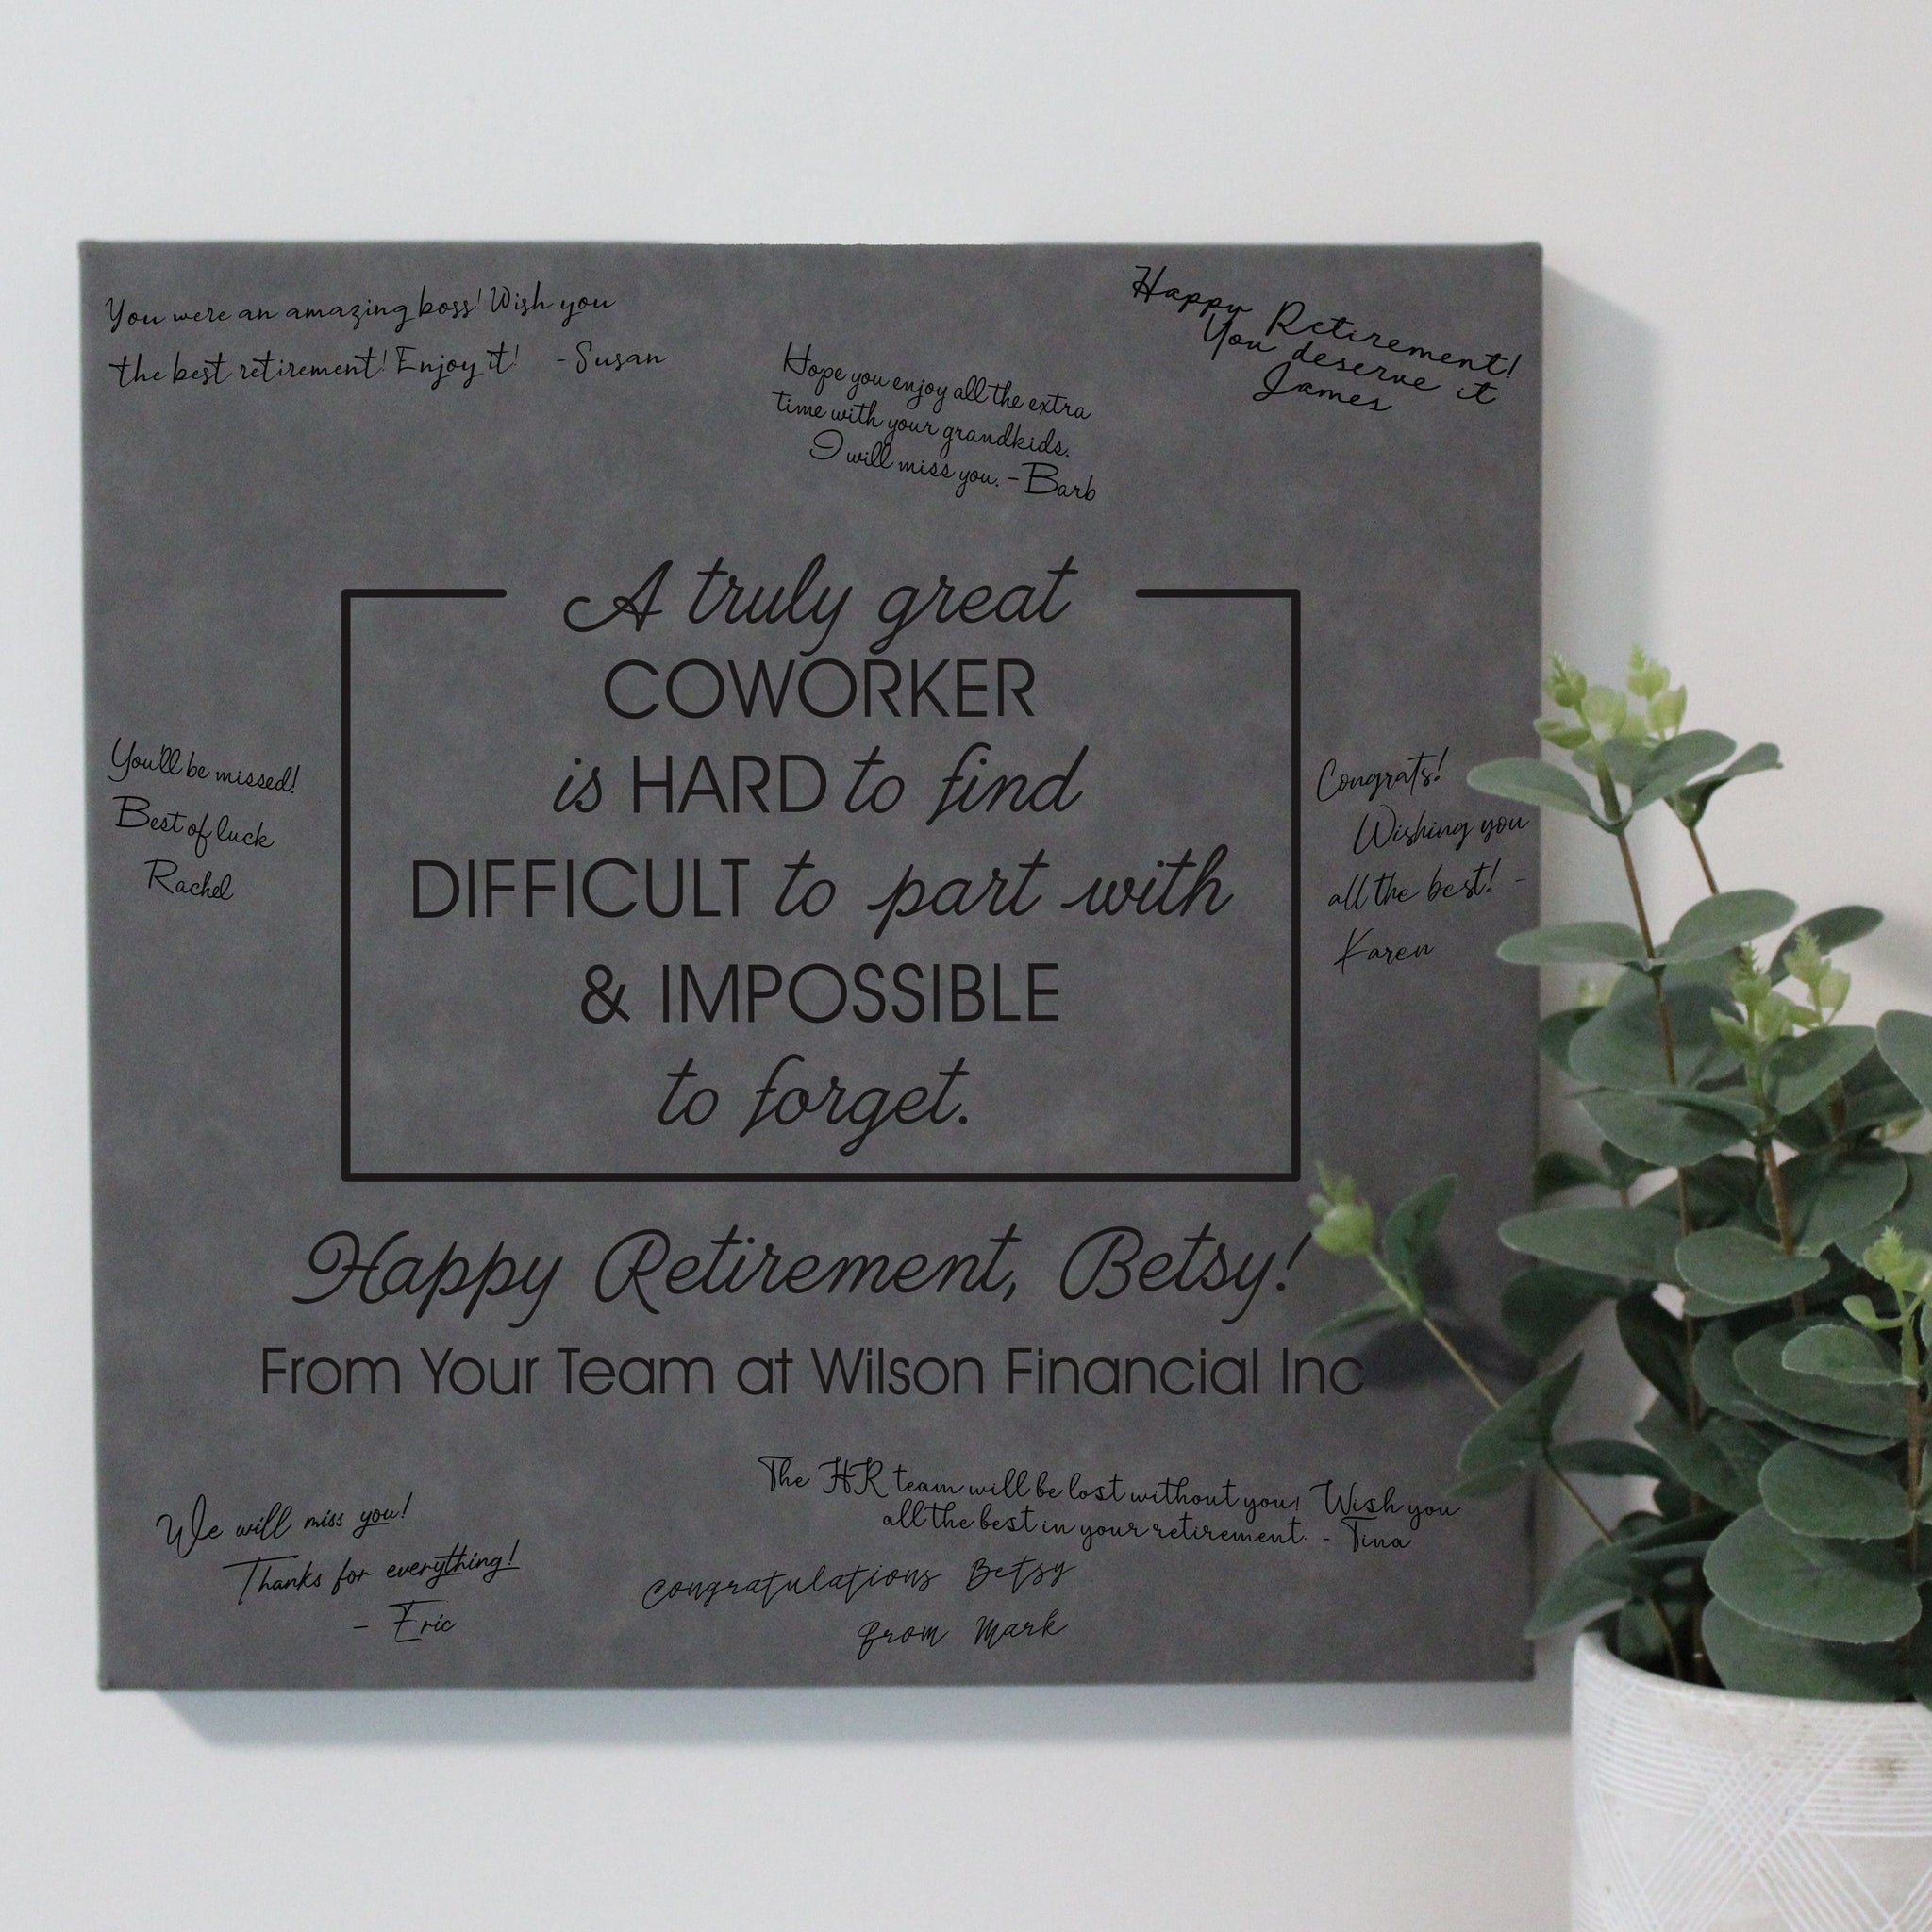 You were an amazing boss! Wish you
the best retirement! Enjoy it! - Susan
Hope you enjoy all the extra
time with your grandkids.
I will miss you. - Barb
Happy Retirement!
You deserve it
James
A truly great
COWORKER
is HARD to find
DIFFICULT to part with
& IMPOSSIBLE
to forget.
You'll be missed!
Best of luck
Rachel
Congrats!
Wishing you
all the best! -
Karen
Happy Retirement, Betsy!
From Your Team at Wilson Financial Inc
We will miss you!
Thanks for everything!
- Eric
The HR team will be lost without you! Wish you
all the best in your retirement. - Tina
Congratulations Betsy
from Mark